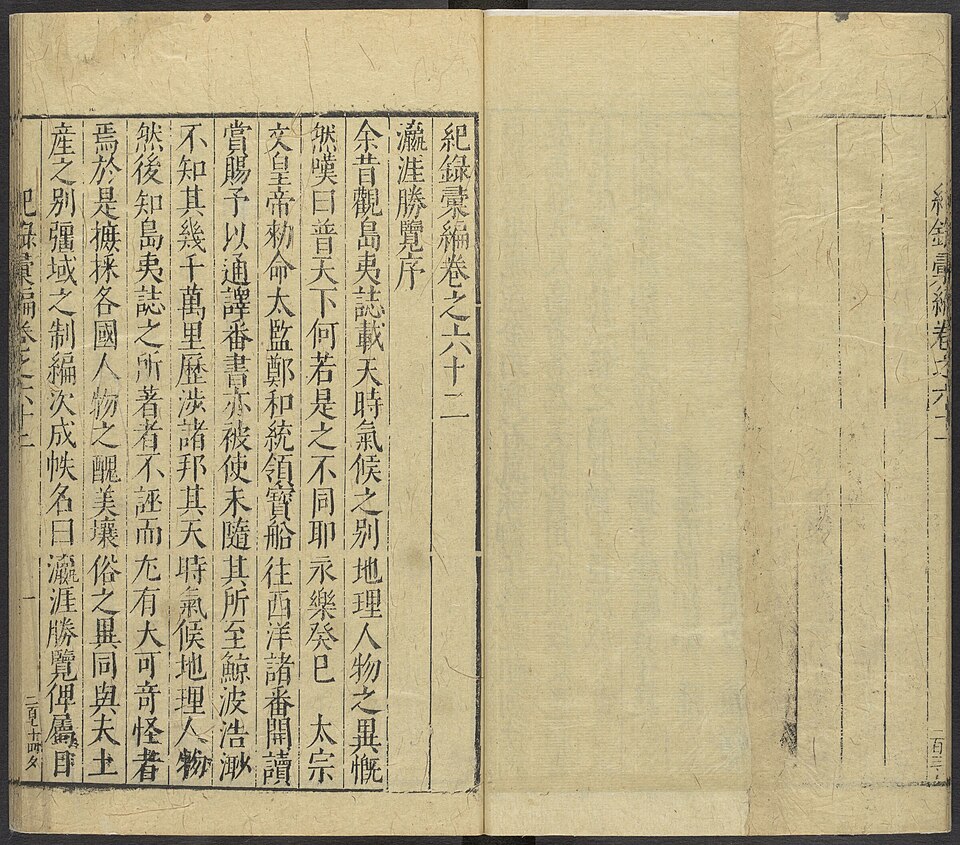 紀錄彙編卷之六十二
瀛涯勝覽序
余昔觀島夷誌載天時氣候之别地理人物之異慨
然嘆曰普天下何若是之不同耶永樂癸巳　太宗
文皇帝勑命太監鄭和統領寶船往西洋諸番開讀
賞賜予以通譯番書亦被使末隨其所至鯨波浩渺
不知其幾千萬里歷涉諸邦其天時氣候地理人物
然後知島夷誌之所著者不誣而尢有大可奇怪者
焉於是摭採各國人物之醜美壤俗之異同與夫土
産之别疆域之制編次成帙名曰瀛涯勝覽俾屬目
紀錄彙編卷之六十二　一
紀錄彙編卷之六十二